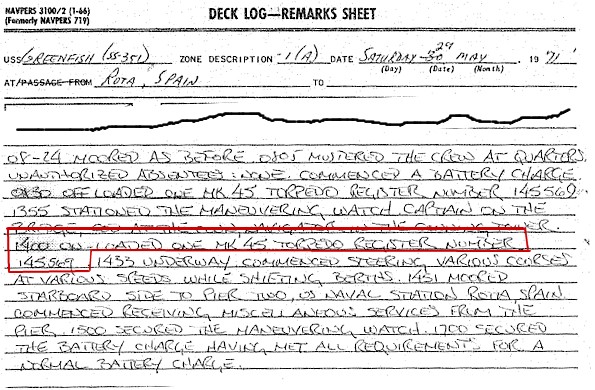 NAVPERS 3100/2 (1-66)
(Formerly NAVPERS 719)
DECK LOG—REMARKS SHEET
USS GREENFISH (SS-351) ZONE DESCRIPTION -1(A) DATE SATURDAY 29 MAY 1971
(Day) (Date) (Month)
AT/PASSAGE FROM ROTA, SPAIN TO
08-24 MOORED AS BEFORE. 0805 MUSTERED THE CREW AT QUARTERS,
UNAUTHORIZED ABSENTEES: NONE. COMMENCED A BATTERY CHARGE.
0830 OFF LOADED ONE MK 45 TORPEDO REGISTER NUMBER 145569
1355 STATIONED THE MANEUVERING WATCH CAPTAIN ON THE
BRIDGE, NAVIGATOR IN THE CONNING TOWER.
1400 ON-LOADED ONE MK 45 TORPEDO REGISTER NUMBER
145569. 1433 UNDERWAY COMMENCED STEERING VARIOUS COORSES
AT VARIOUS SPEEDS WHILE SHIFTING BERTHS. 1451 MOORED
STARBOARD SIDE TO PIER TWO, US NAVAL STATION ROTA, SPAIN
COMMENCED RECEIVING MISCELLANEOUS SERVICES FROM THE
PIER. 1500 SECURED THE MANEUVERING WATCH. 1700 SECURED
THE BATTERY CHARGE HAVING MET ALL REQUIREMENTS FOR A
NORMAL BATTERY CHARGE.